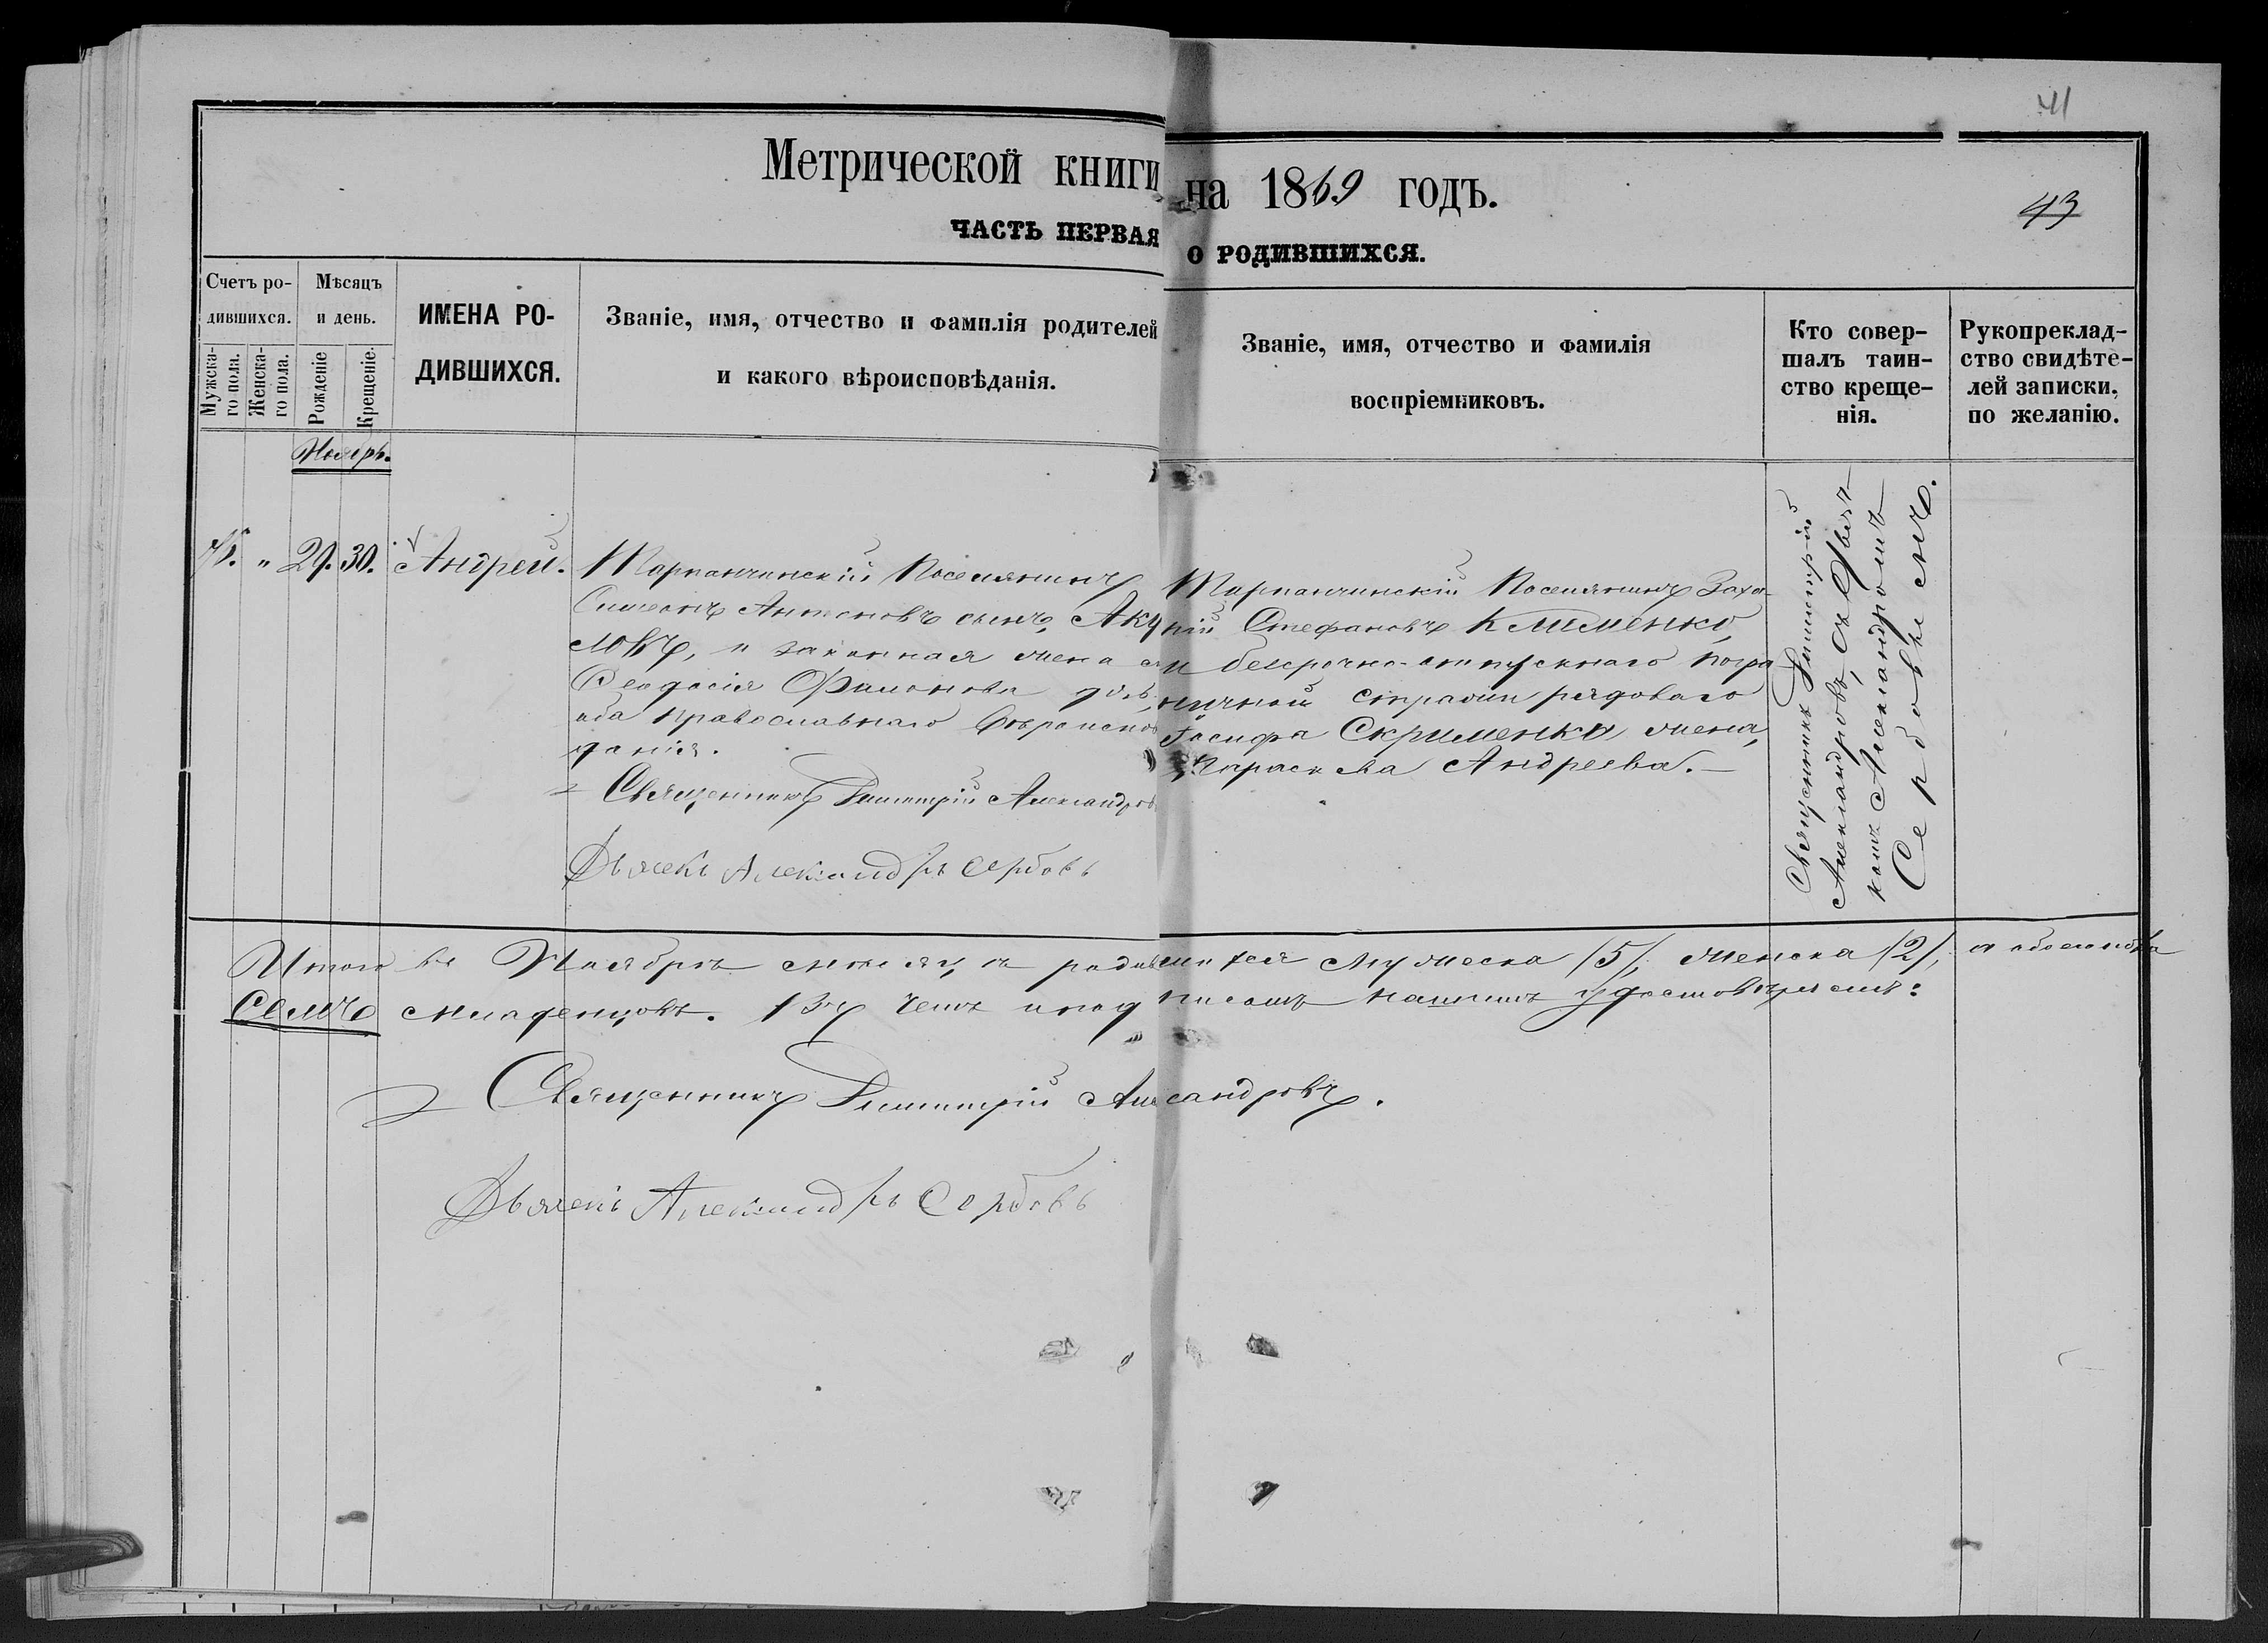 41
Метрической книги на 1869 годъ.
43
ЧАСТЬ ПЕРВАЯ О РОДИВШИХСЯ.
Счетъ ро-
дившихся.
Мужска-
го пола.
Женска-
го пола.
Мѣсяцъ
и день.
Рожденіе
Крещеніе.
ИМЕНА РО-
ДИВШИХСЯ.
Званіе, имя, отчество и фамилія родителей
и какого вѣроисповѣданія.
Званіе, имя, отчество и фамилія
воспріемниковъ.
Кто совер-
шалъ таин-
ство креще-
нія.
Рукопреклад-
ство свидѣте-
лей записки,
по желанію.
Ноябрь.
" 29. 30. Андрей.
Тарпанчинскій Поселянинъ
Симеонъ Антоновъ сынъ, Аку
ловъ, и законная жена
Феодосія Филонова
оба православнаго вѣроиспов
данія.
Священникъ Димитрій Александров
Дьячекъ Александръ Сербовъ
Тарпанчинскій Поселянинъ Заха-
рій Стефановъ Клименко,
и безсрочно-отпускнаго погра
ничной стражи рядоваго
Іосифа Скрименка жена,
Параскева Андреева. —
Священникъ Димитрій
Александровъ, съ Дьяч-
комъ Александромъ
Сербовымъ.
Итого въ Ноябрѣ мѣсяцѣ родившихся мужеска /5/, женска /2/, а обоего пола
Семь младенцовъ. Въ чемъ и подписомъ нашимъ удостовѣряемъ:
Священникъ Димитрій Александровъ.
Дьячекъ Александръ Сербовъ